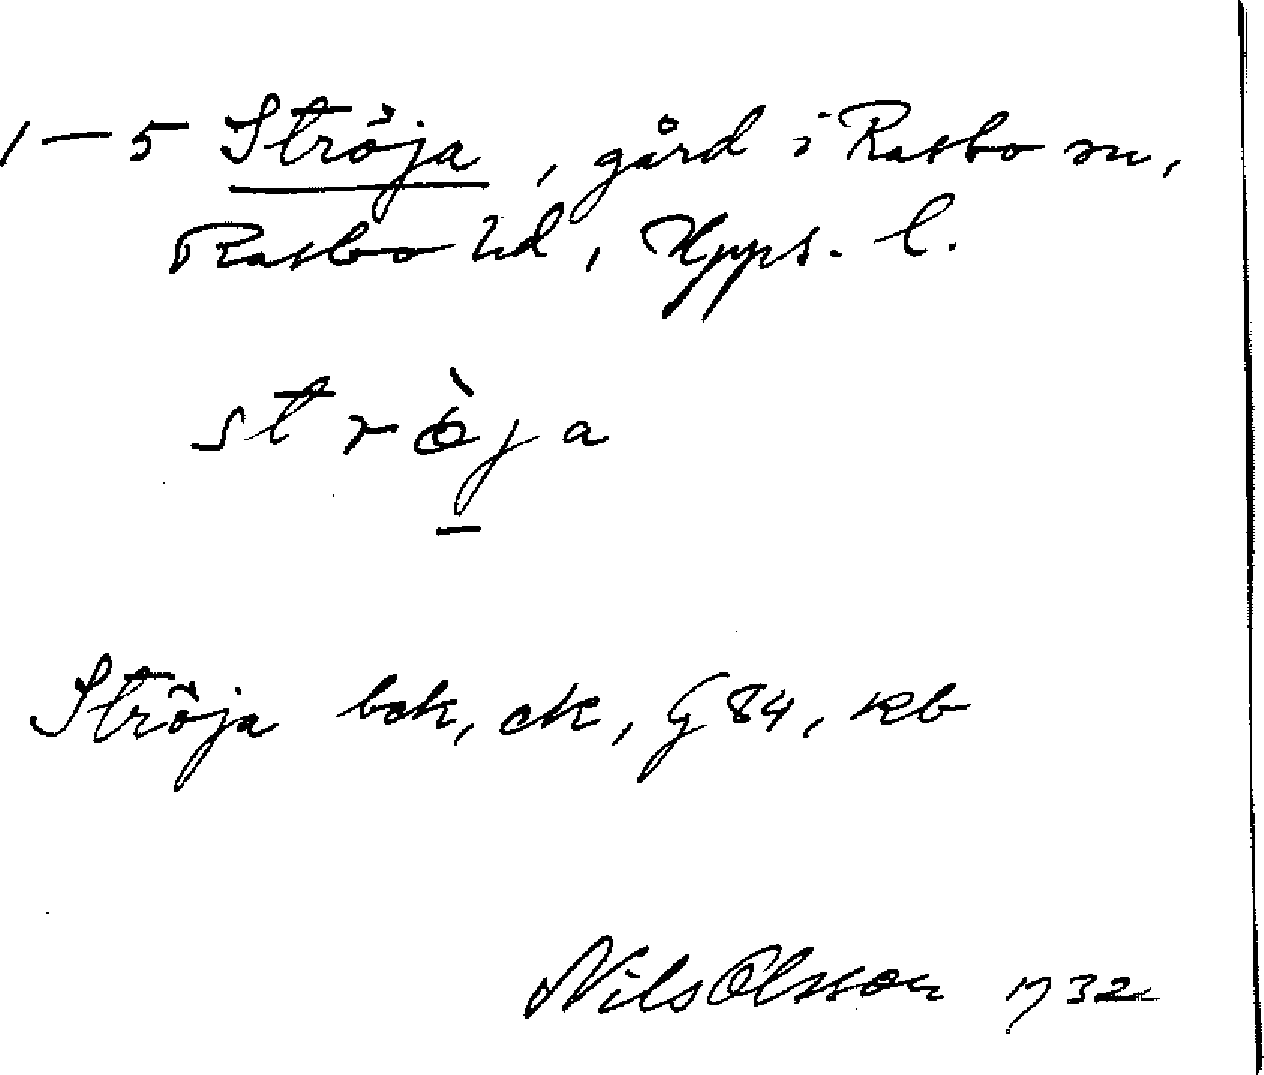 1–5 Ströja, gård i Rasbo sn,
Rasbo hd, Upps. l.
strö̀ja
Ströja bek, ek, G 84, kb
Nils Olsson 1932